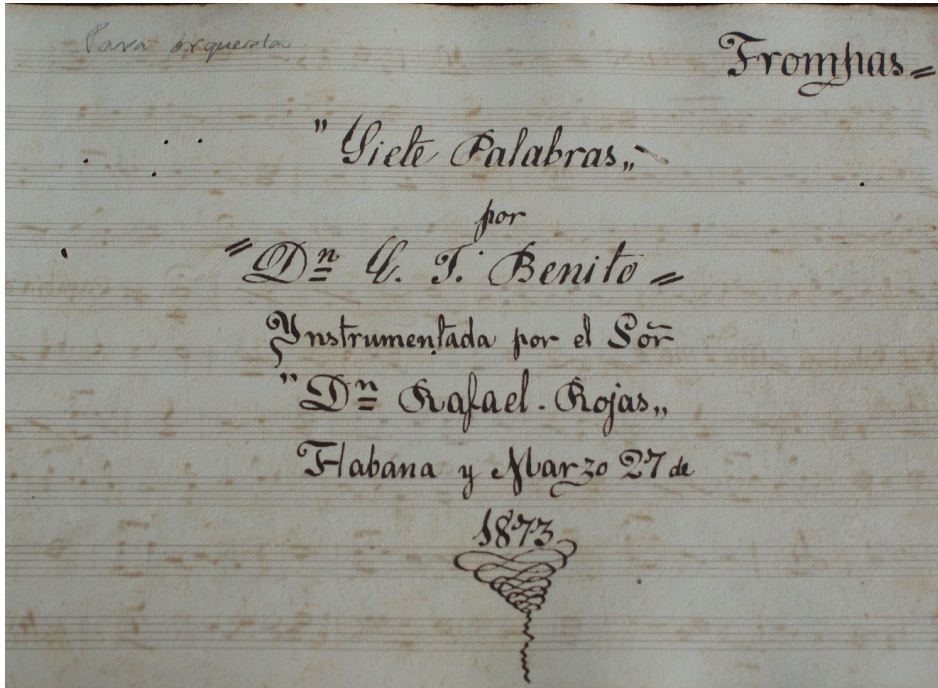 Para orquesta
Trompas =
" Siete Palabras „
por
= Dn C. T. Benito =
Ynstrumentada por el Sor
" Dn Rafael - Rojas „
Habana y Marzo 27 de
1873